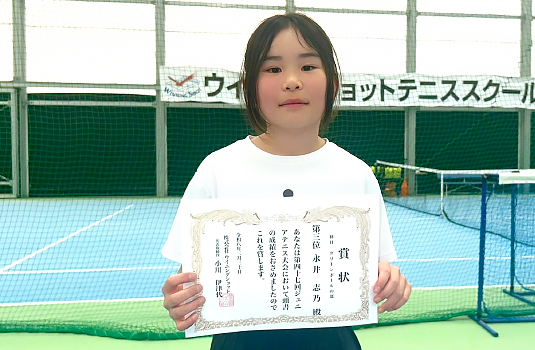 ウイ
ョットテニススクール
賞状
種目 グリーンボールの部
第三位 永井 志乃 殿
あなたは第四十七回ジュニ
アテニス大会において頭書
の成績をおさめましたので
これを賞します。
株式会社ウイニングショット
小川 伊津代